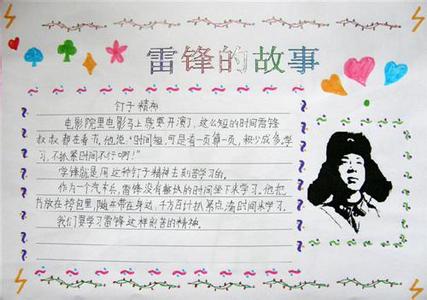 雷锋的故事
钉子精神
电影院里电影马上就要开演了,这么短的时间雷锋
叔叔都在看书,他说:"时间短,可是看一页算一页,积少成多,学
习,不抓紧时间不行啊!"
学锋就是用这种钉子精神去刻苦学习的。
作为一个汽车兵,雷锋没有整块的时间坐下来学习。他把
书放在挎包里,随身带在身边,千方百计抓紧点滴时间来学习。
我们要学习雷锋这样刻苦的精神。